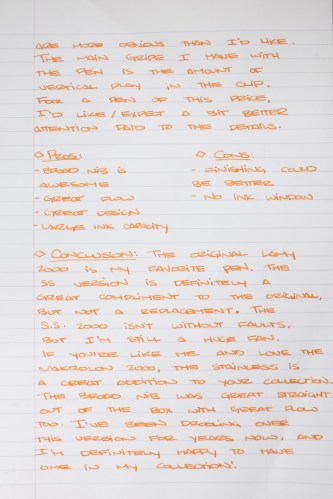 ARE MORE OBVIOUS THAN I'D LIKE.
THE MAIN GRIPE I HAVE WITH
THE PEN IS THE AMOUNT OF
VERTICAL PLAY IN THE CLIP.
FOR A PEN OF THIS PRICE,
I'D LIKE/EXPECT A BIT BETTER
ATTENTION PAID TO THE DETAILS.
◇ PROS:
- BROAD NIB IS
AWESOME
- GREAT FLOW
- GREAT DESIGN
- LARGE INK CAPACITY
◇ CONS:
- FINISHING COULD
BE BETTER
- NO INK WINDOW
◇ CONCLUSION: THE ORIGINAL LAMY
2000 IS MY FAVORITE PEN. THE
SS VERSION IS DEFINITELY A
GREAT COMPLIMENT TO THE ORIGINAL,
BUT NOT A REPLACEMENT. THE
S.S. 2000 ISN'T WITHOUT FAULTS,
BUT I'M STILL A HUGE FAN.
IF YOU'RE LIKE ME AND LOVE THE
MAKROLON 2000, THE STAINLESS IS
A GREAT ADDITION TO YOUR COLLECTION.
THE BROAD NIB WAS GREAT STRAIGHT
OUT OF THE BOX WITH GREAT FLOW
TOO. I'VE BEEN DROOLING OVER
THIS VERSION FOR YEARS NOW, AND
I'M DEFINITELY HAPPY TO HAVE
ONE IN MY COLLECTION!